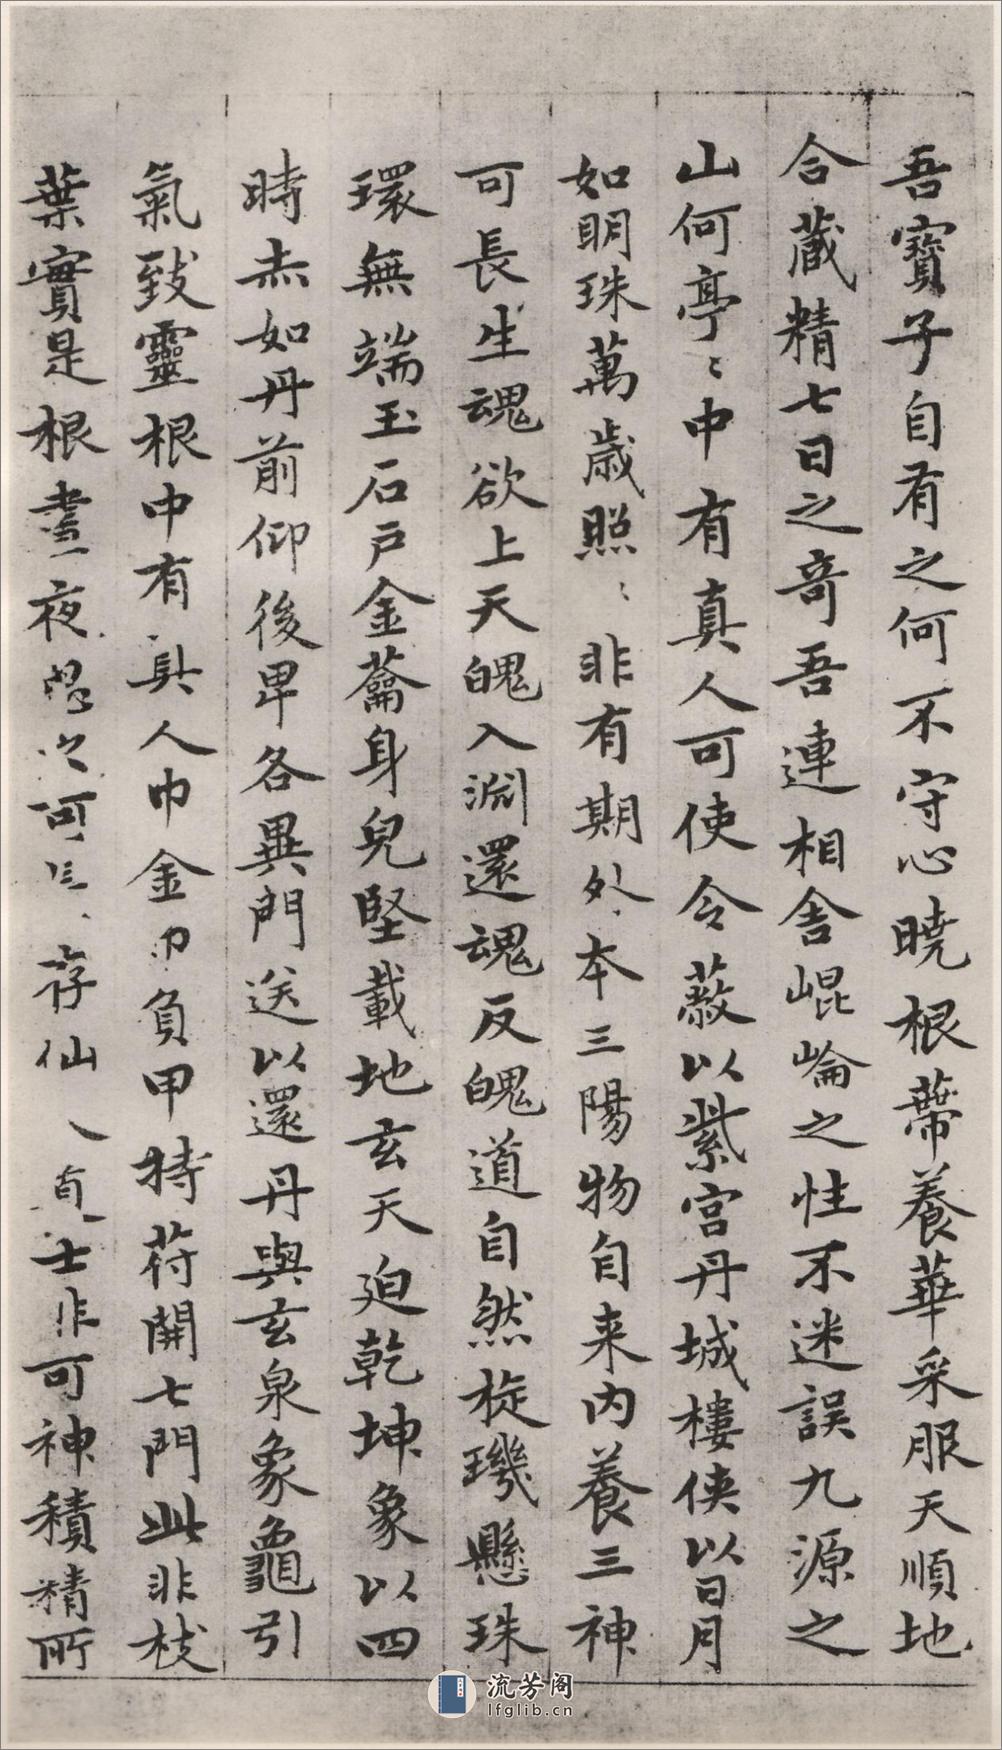 吾寶子自有之何不守心曉根蔕養華采服天順地
合藏精七日之奇吾連相舍崐崘之性不迷誤九源之
山何亭〻中有真人可使令蔽以紫宮丹城樓俠以日月
如明珠萬歲照〻非有期外本三陽物自来内養三神
可長生魂欲上天魄入淵還魂反魄道自然旋璣懸珠
環無端玉石戶金蘥身皃堅載地玄天迫乾坤象以四
時赤如丹前仰後卑各異門送以還丹與玄泉象龜引
氣致靈根中有真人巾金巾負甲持苻開七門此非枝
葉實是根晝夜思之可長存仙人道士非可神積精所
流芳阁
lfglib.cn